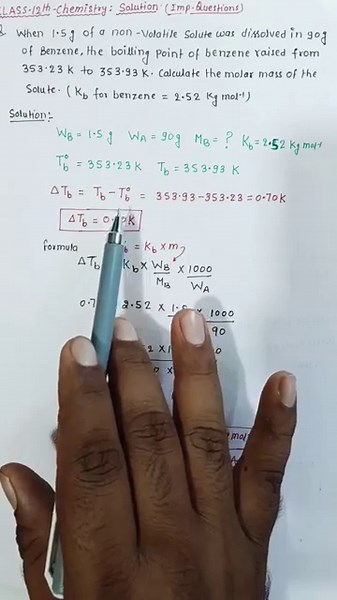 CLASS-12th-Chemistry: Solution (Imp. Questions)
When 1.5g of a non-Volatile Solute was dissolved in 90g
of Benzene, the boilling point of benzene raised from
353.23K to 353.93K. Calculate the molar mass of the
Solute. (Kb for benzene = 2.52 Kg mol⁻¹)
Solution:
WB = 1.5g WA = 90g MB = ? Kb = 2.52 Kg mol⁻¹
T°b = 353.23K Tb = 353.93K
ΔTb = Tb - T°b = 353.93 - 353.23 = 0.70K
ΔTb = 0.70K
formula = Kb × m
ΔTb Kb × WB/MB × 1000/WA
0.7 2.52 × 1.5 × 1000
90